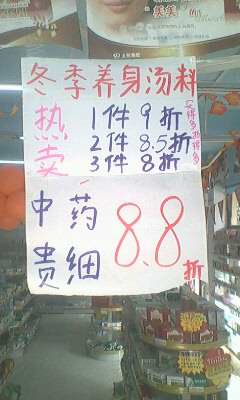 冬季养身汤料
热卖
1件 9折
2件 8.5折
3件 8折
买得多省得多
中药
贵细
8.8折